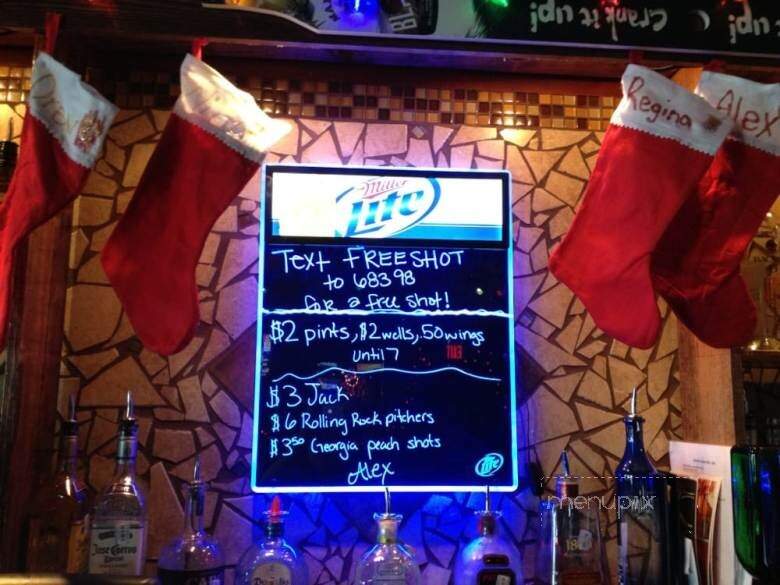 Crank it up!
it up!
Drew
Regina
Alex
Miller
Lite
Text FREE SHOT
to 68398
for a free shot!
$2 pints, $2 wells, .50 wings
until 7
$3 Jack
$6 Rolling Rock pitchers
$3⁵⁰ Georgia peach shots
Alex
Lite
Jose Cuervo
menupix